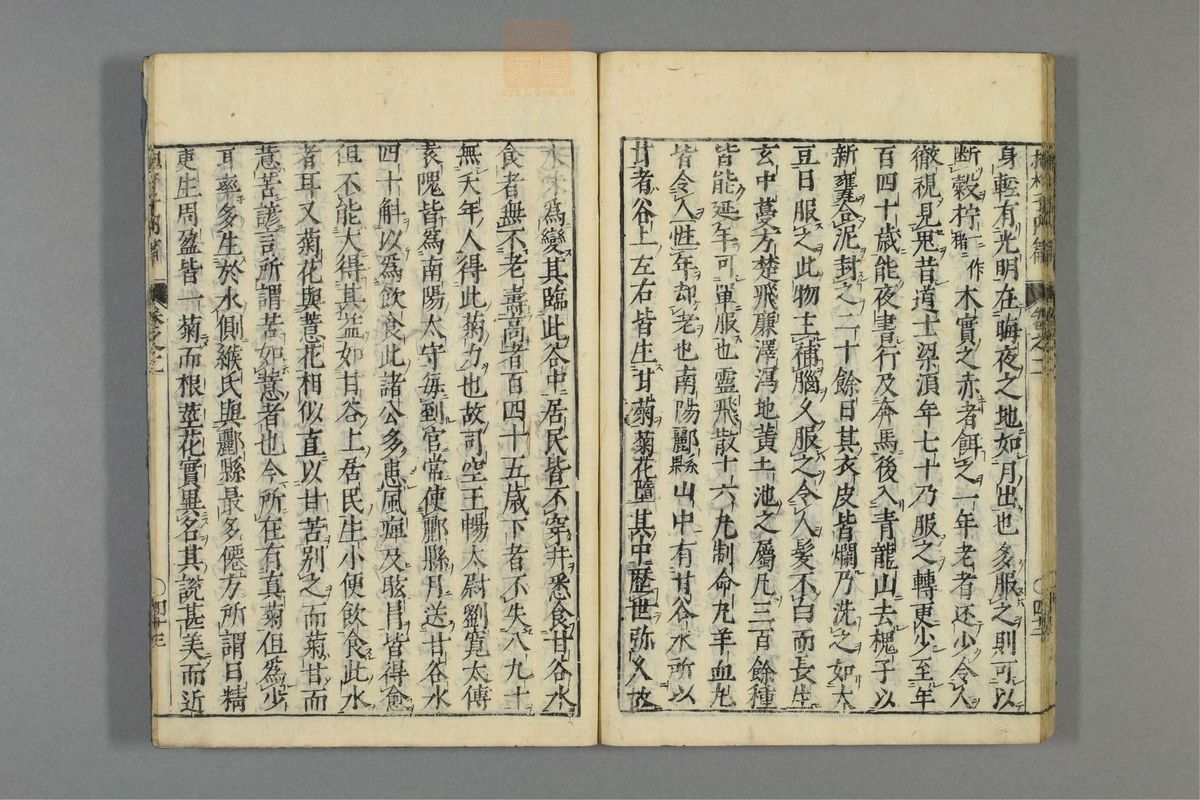 身轉有光明在晦夜之地如月出也多服之則可以
斷穀柠一作楮木實之赤者餌之一年老者还少令人
徹視見鬼昔道士梁湏年七十乃服之轉更少至年
百四十歲能夜書行及奔馬後入青龍山去槐子以
新甕合泥封之二十餘日其衣皮皆爛乃洗之如大
豆日服之此物主補腦久服之令人髮不白而長生
玄中蔓方楚飛廉澤瀉地黃土池之屬凡三百餘種
皆能延年可單服也靈飛散十六丸制命丸羊血丸
皆令人性年却老也南陽酈縣山中有甘谷水所以
甘者谷上左右皆生甘菊菊花墮其中歷世弥久故
水味爲變其臨此谷中居民皆不穿井悉食甘谷水
食者無不老壽高者百四十五歲下者不失八九十
無夭年人得此菊力也故司空王暢太尉劉寬太傅
袁隗皆爲南陽太守毎到官常使酈縣月送甘谷水
四十斛以爲飲食此諸公多患風痺及眩冐皆得愈
但不能大得其益如甘谷上居民生小便飲食此水
者耳又菊花與薏花相似直以甘苦别之而菊甘而
薏苦諺言所謂苦如薏者也今所在有真菊但爲少
耳率多生於水側緱氏與酈縣最多僊方所謂日精
更生周盈皆一菊而根莖花實異名其說甚美而近